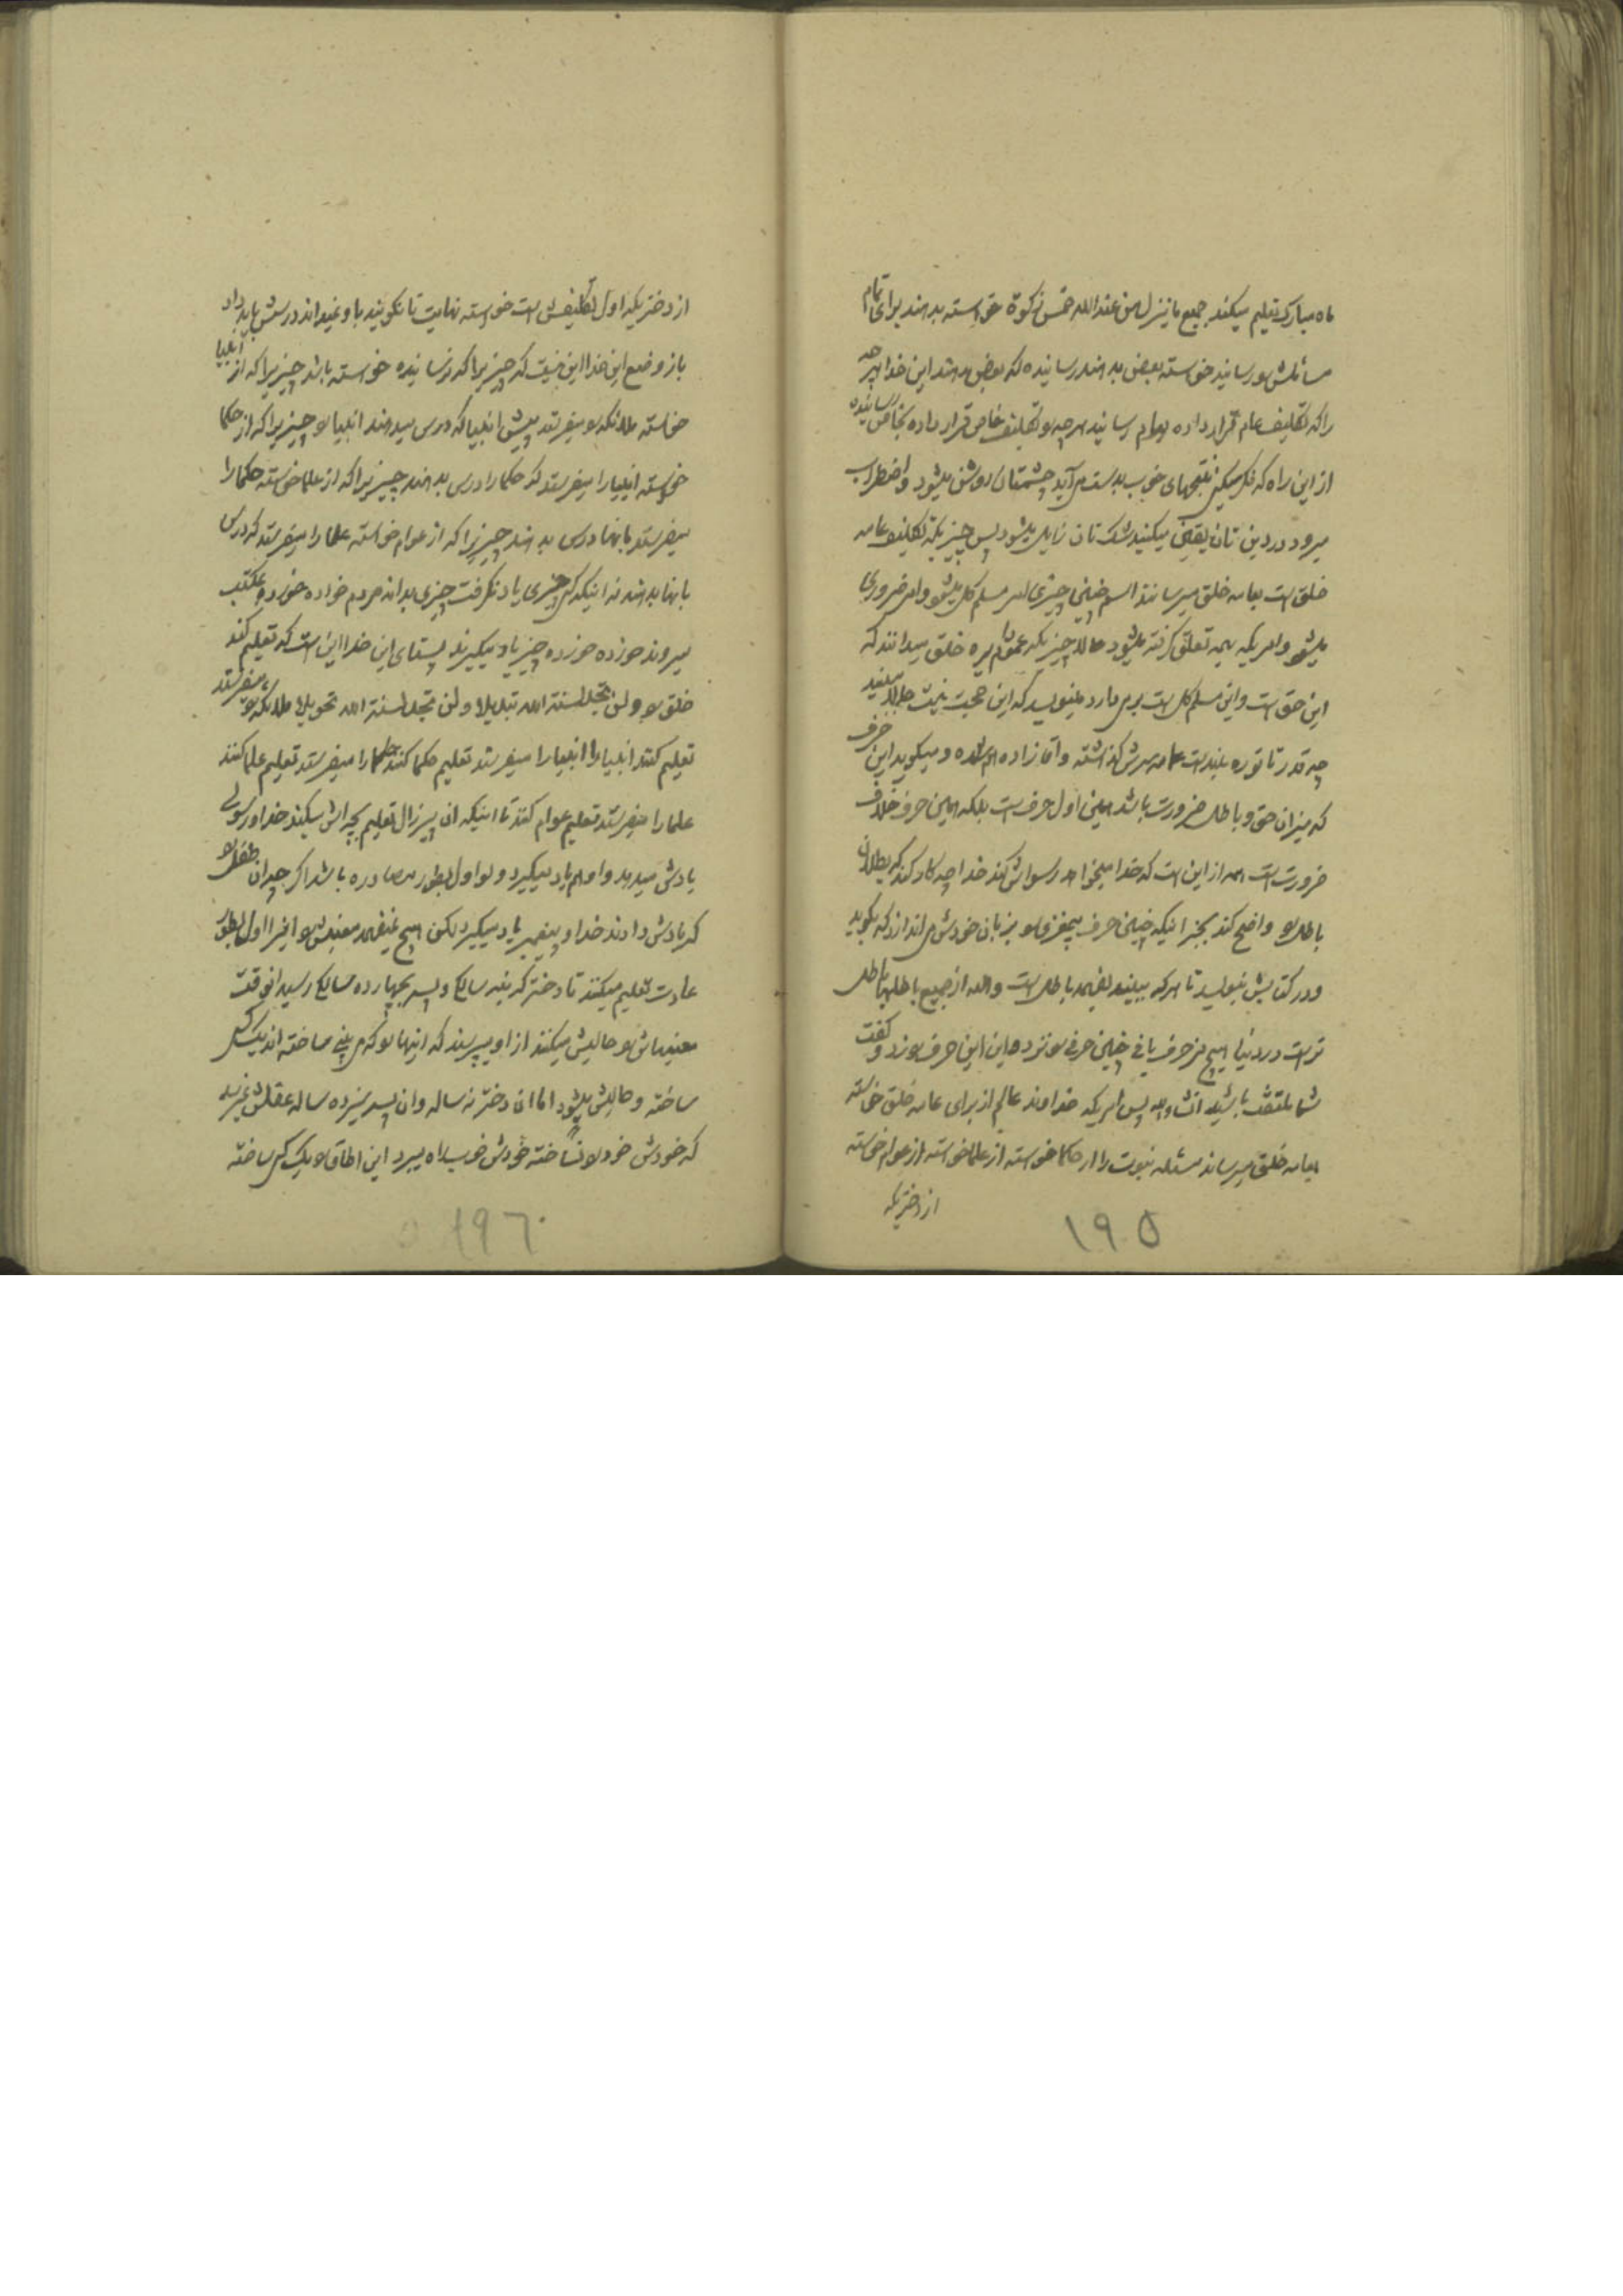 ماه مبارک تعلیم میکند جمیع ما ینزل من عند الله خمس زکوة خواسته بدهند برای تمام
مسائلش رسانید خواسته بعضی بدهند رسانیده که بعضی بدهند این خدا هرچه
را که تکلیف عام قرار داده بعوام رسانید هرچه تکلیف خاص قرار داده بخاص رسانیده
از این راه که فکر میکنی نتیجهای خوب بدست می‌آید چشمتان روشن میشود و اضطراب
میرود در دین تان یقین میکنید شک تان زایل میشود پس چیزیکه تکلیف عامه
خلق است بعامه خلق میرسانند اسم چنین چیزی امر مسلم کل میشود و امر ضروری
میشود و امریکه بهمه تعلق گرفته میشود حالا چیزیکه عموم خلق میدانند که
این حق است و این مسلم کل است برمی‌دارد مینویسد که این حجت نیست حالا ببینید
چه قدر تا توره بلند است عمامه سرش گذاشته و آقا زاده هم شده و میگوید این حرف
که میزان حق و باطل ضرورت باشد همین اول حرف است بلکه همین حرف خلاف
ضرورت است همه از این است که خدا میخواهد رسواش کند خدا چه کار کند که بطلان
باطل را واضح کند بجز اینکه چنین حرف بیمغزی را بزبان خودش می‌اندازد که بگوید
و در کتابش بنویسد تا هرکه ببیند بفهمد باطل است و الله از جمیع باطلها باطل
تر است در دنیا هیچ مزخرف بافی چنین حرفی را نزده این این حرف را زد و گفت
شما ملتفت باشید انشاءالله پس امریکه خداوند عالم از برای عامه خلق خواسته
بعامه خلق میرساند مسئله نبوت را از حکما خواسته از علما خواسته از عوام خواسته
از دختریکه
۱۹۵
از دختریکه اول تکلیفش است خواسته نهایت تا نگویند باو نمیداند درسش باید داد
باز وضع این خدا این نیست که چیزیرا که نرسانیده خواسته باشد چیزیرا که از انبیا
خواسته ملائکه را میفرستد پیش انبیا که درس میدهند انبیا را چیزیرا که از حکما
خواسته انبیا را میفرستد که حکما را درس بدهند چیزیرا که از علما خواسته حکما را
میفرستد بانها درس بدهند چیزیرا که از عوام خواسته علما را میفرستد که درس
بانها بدهند نه اینکه کسی چیزی یاد نگرفت چیزی بداند مردم خورده خورده بمکتب
میروند خورده خورده چیز یاد میگیرند پس بنای این خدا این است که تعلیم کند
خلق را و لن تجد لسنة الله تبدیلا و لن تجد لسنة الله تحویلا ملائکه را میفرستد
تعلیم کنند انبیا را انبیا را میفرستد تعلیم حکما کنند حکما را میفرستد تعلیم علما کنند
علما را میفرستد تعلیم عوام کنند تا اینکه ان پیر زال تعلیم بچه اش میکند خدا و رسولی
یادش میدهد و او هم یاد میگیرد و لو اول بطور مصادره باشد اگر چه ان طفل را
که یادش دادند خدا و پیغمبر یاد میگیرد لکن هیچ نمیفهمد معنیش را اخر اول بطور
عادت تعلیم میکنند تا دختر که بنه سالگی و پسر بچهارده سالگی رسید انوقت
معنیهاش را حالیش میکنند از او میپرسند که اینها را که می بینی ساخته اند یک کسی
ساخته و حالیش میشود اما ان دختر نه ساله و ان پسر سیزده ساله عقلش نمیرسد
که خودش خود را نساخته خودش خوب راه میبرد این اطاق را یک کسی ساخته
۱۹۶